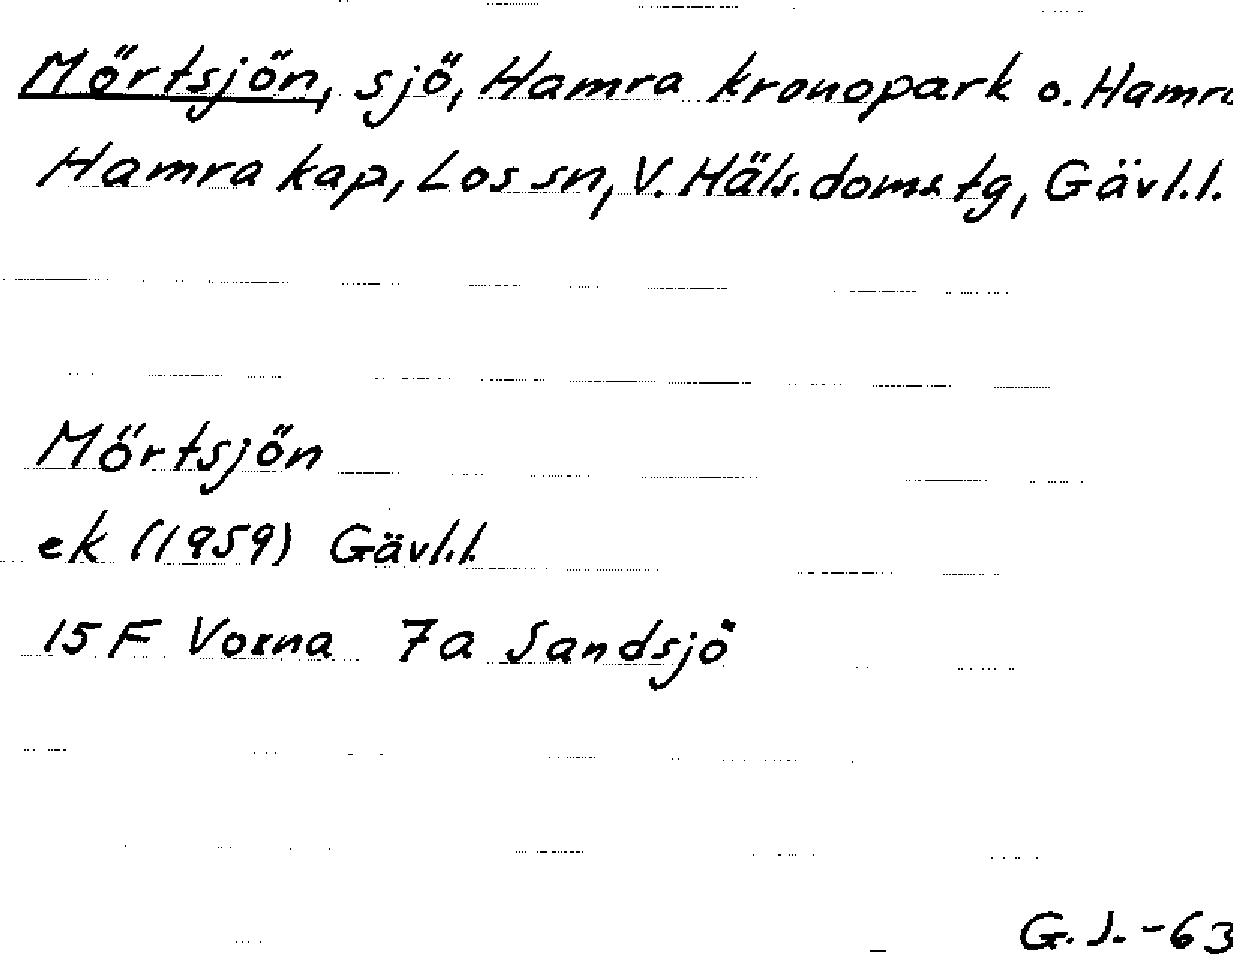 Mörtsjön, sjö, Hamra kronopark o. Hamra
Hamra kap, Los sn, V. Häls. doms tg, Gävl.l.
Mörtsjön
ek (1959) Gävl.l.
15 F Voxna 7a Sandsjö
G.J.-63